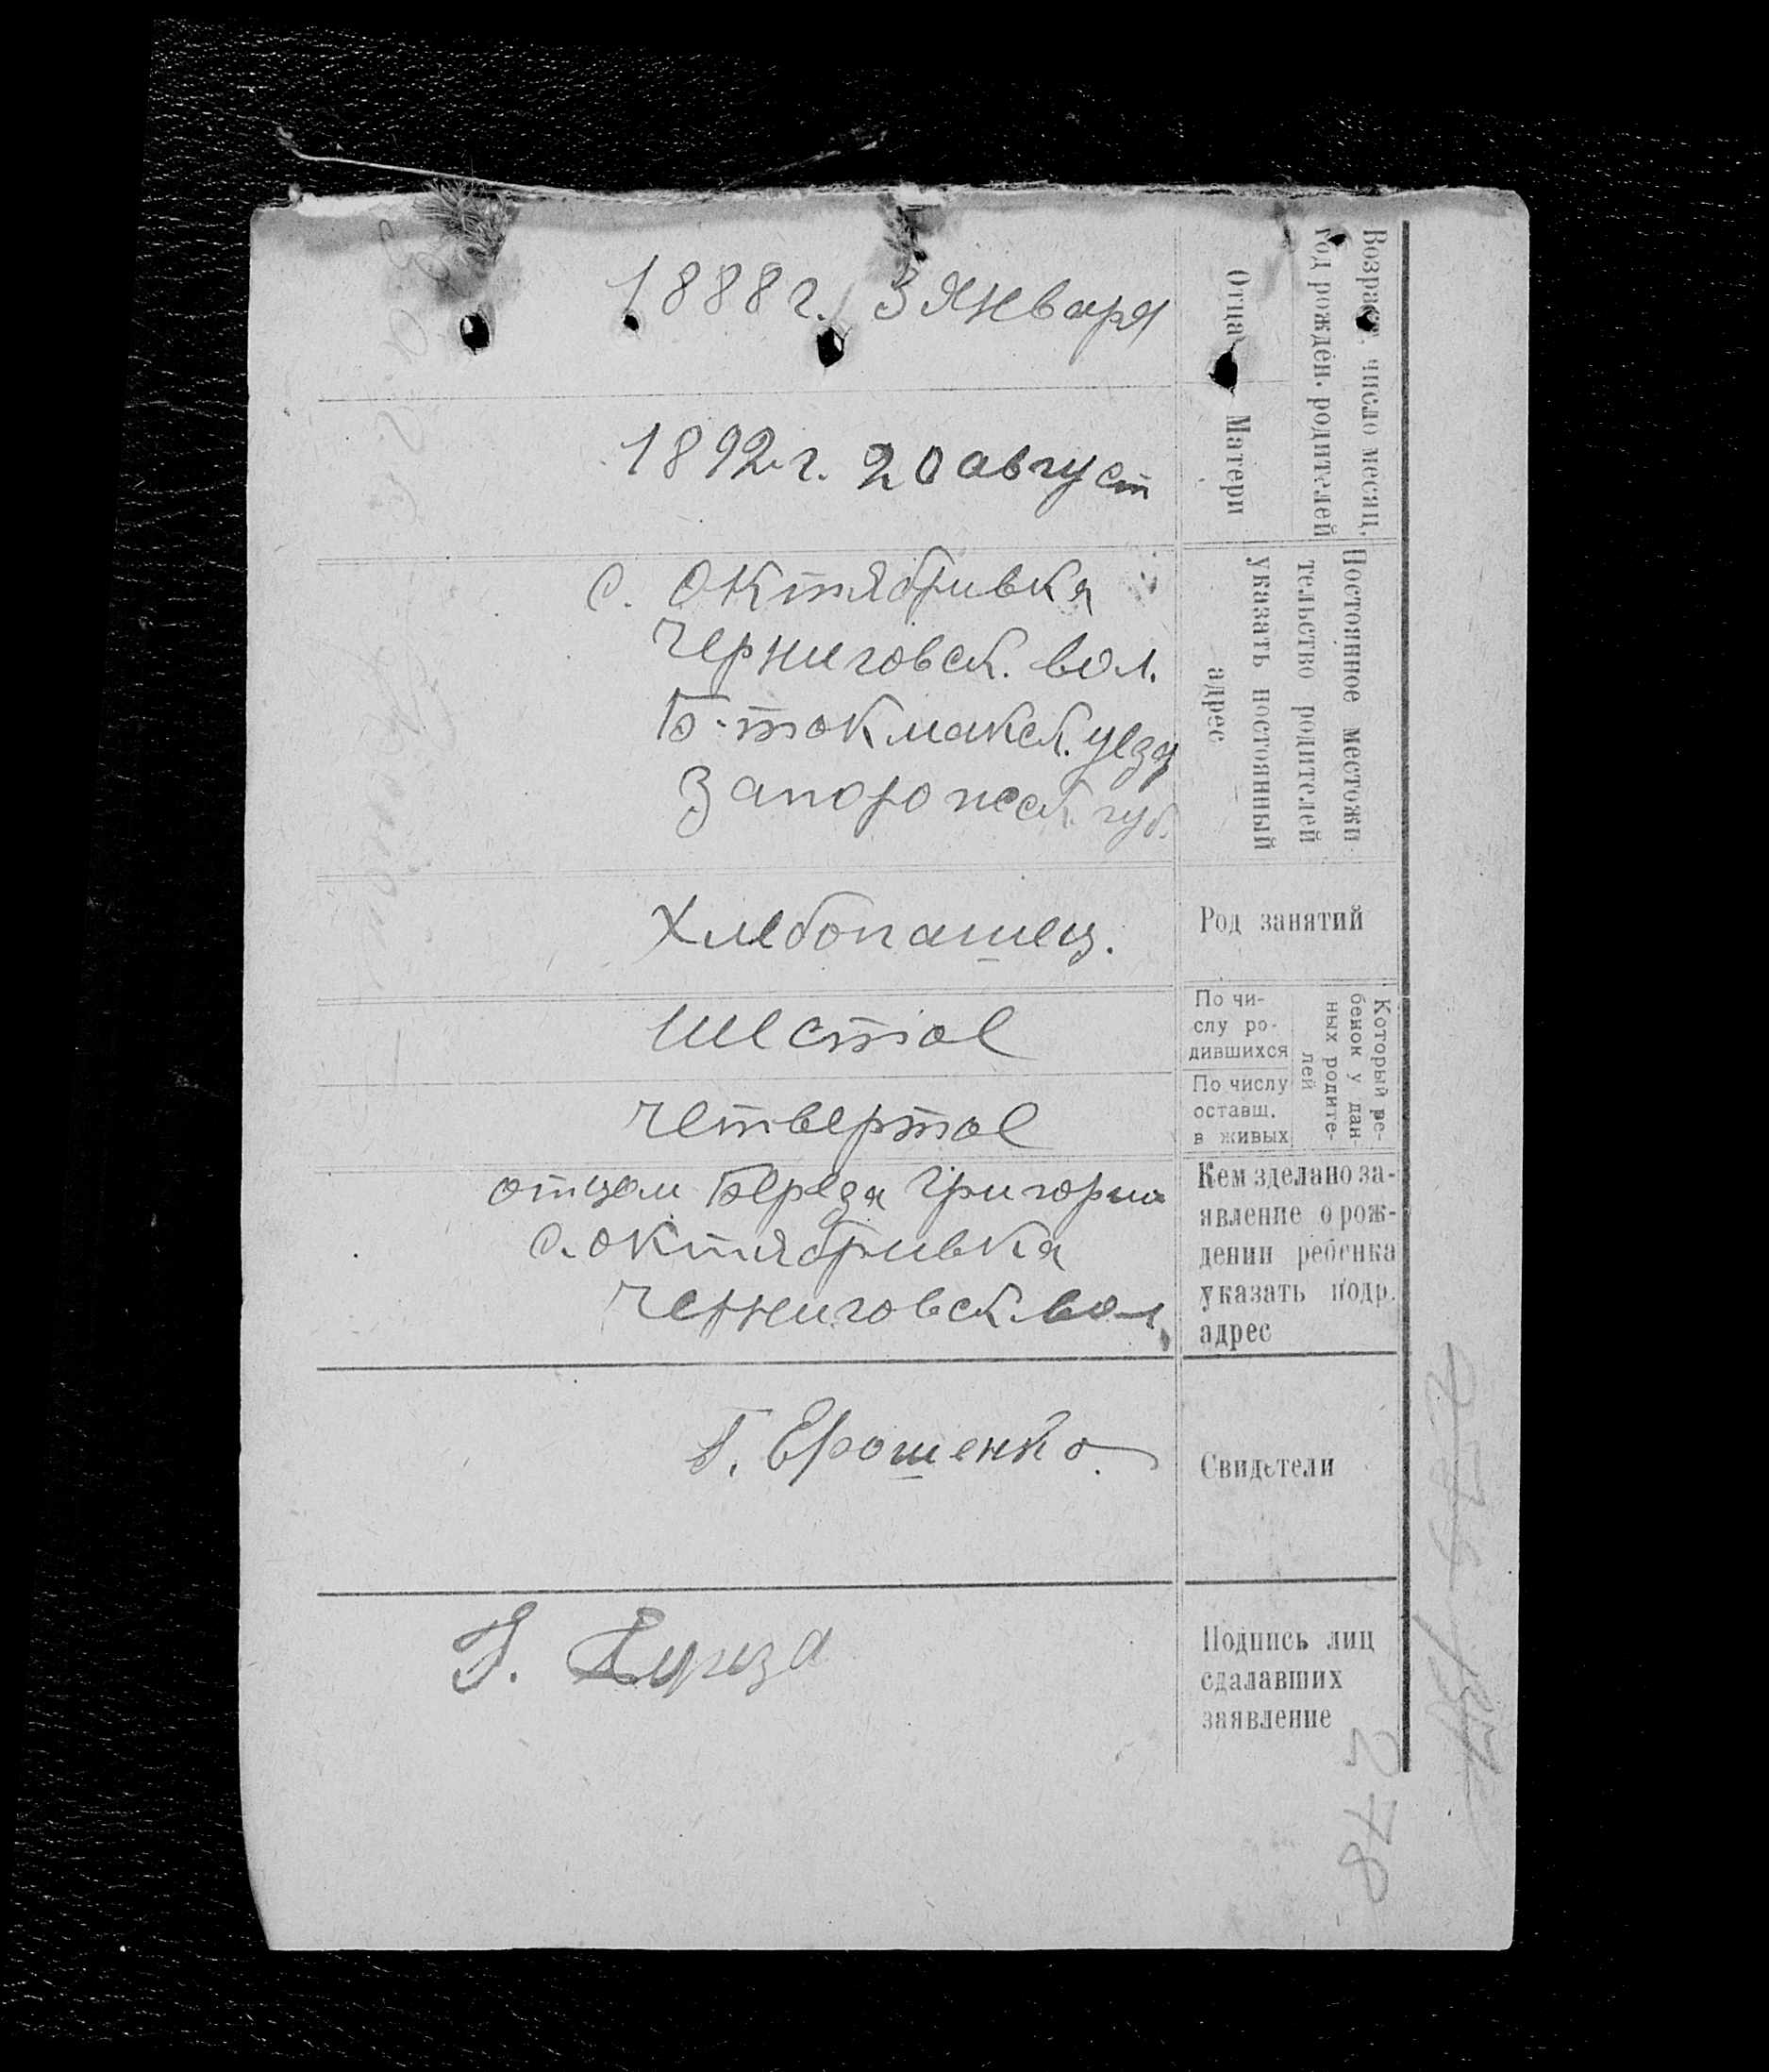 Возраст, число месяц,
год рожден. родителей
Отца
1888 г. 3 января
Матери
1892 г. 20 август
Постоянное местожи-
тельство родителей
указать постоянный
адрес
с. Октябривка
Черниговск. вол.
Б-токмакск. уезд
Запорожск. губ.
Род занятий
Хлебопашец.
Который ре-
бенок у дан-
ных родите-
лей
По чи-
слу ро-
дившихся
шестое
По числу
оставш.
в живых
четвертое
Кем зделано за-
явление о рож-
дении ребенка
указать подр.
адрес
отцом Береза Григорий
с. Октябривка
Черниговск. вол.
Свидетели
Г. Ерошенко.
Подпись лиц
сдалавших
заявление
278